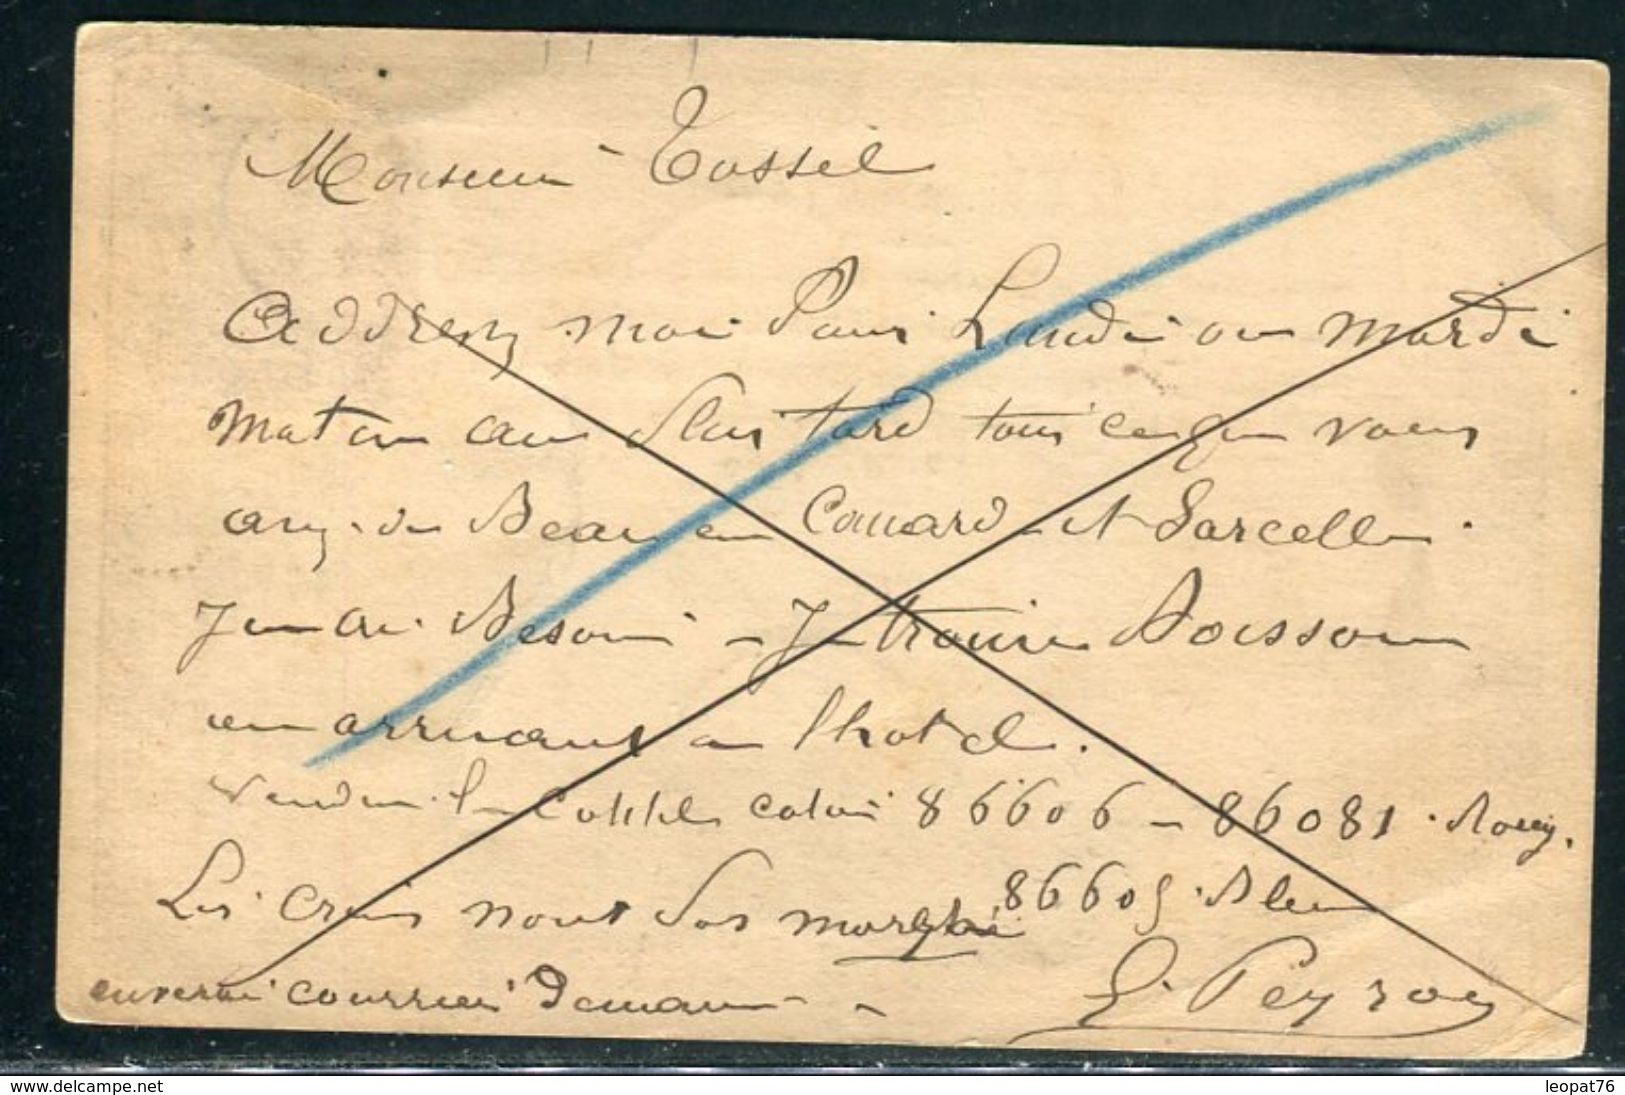 Monsieur Tossel
Addressez moi Pour Lundi ou Mardi
Matin au plus tard tout ce que vous
avez de Beau en Canard et Sarcelle.
J'en ai Besoin - Je trouve Poisson
en arrivant a l'hotel.
Vendu 86606 - 86081 Rouy.
Les Crus nont pas 86605. Bleu
enverrai courrier Demain -
G. Peyrou
www.delcampe.net
leopat76